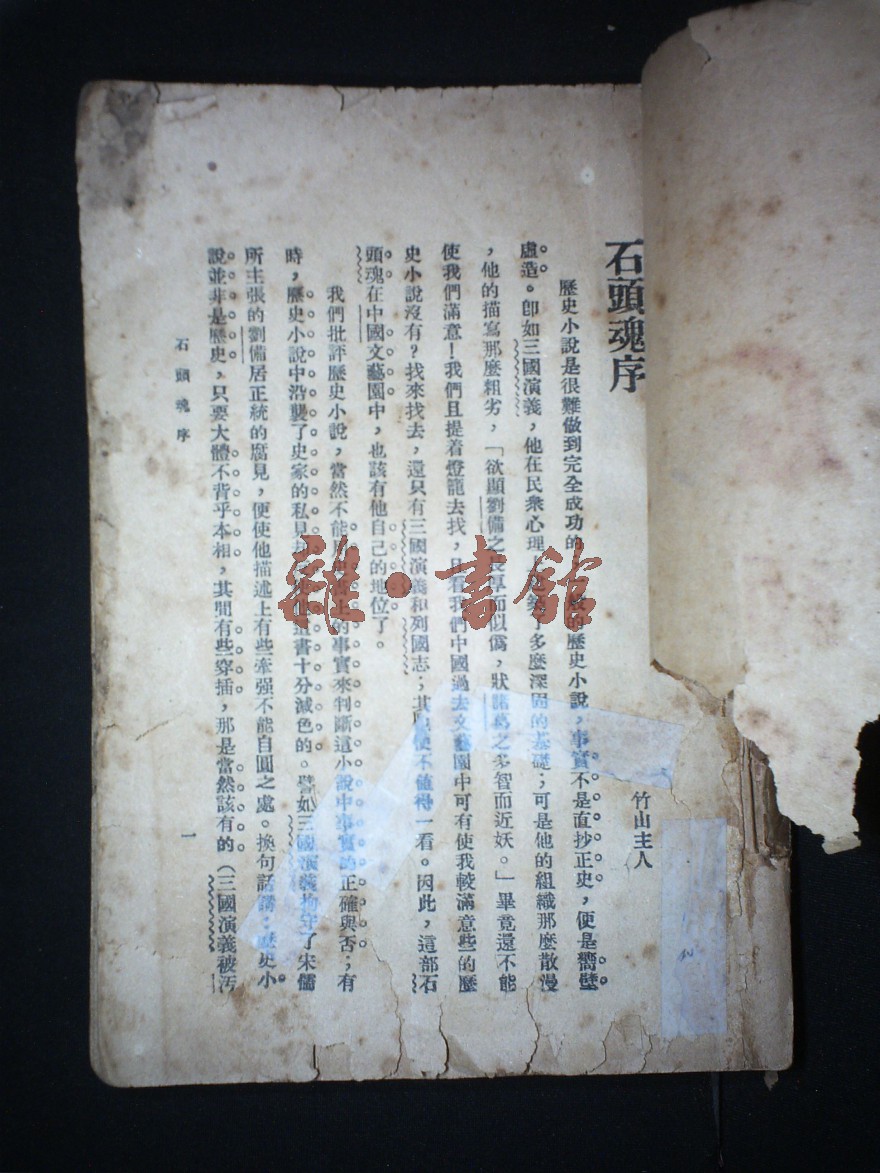 石頭魂序
竹山主人
歷史小說是很難做到完全成功的 般的歷史小說，事實不是直抄正史，便是嚮壁
虛造。卽如三國演義，他在民衆心理 多麼深固的基礎；可是他的組織那麼散漫
，他的描寫那麼粗劣，「欲顯劉備之長厚而似僞，狀諸葛之多智而近妖。」畢竟還不能
使我們滿意！我們且提着燈籠去找，且看我們中國過去文藝園中可有使我較滿意些的歷
史小說沒有？找來找去，還只有三國演義和列國志；其 便不值得一看。因此，這部石
頭魂在中國文藝園中，也該有他自己的地位了。
我們批評歷史小說，當然不能 史書上的事實來判斷這小說中事實的正確與否；有
時，歷史小說中沿襲了史家的私見 書十分減色的。譬如三國演義拘守了宋儒
所主張的劉備居正統的腐見，便使他描述上有些牽强不能自圓之處。換句話講，歷史小
說並非是歷史，只要大體不背乎本相，其間有些穿插，那是當然該有的（三國演義被汚
石頭魂序
一
雜·書館